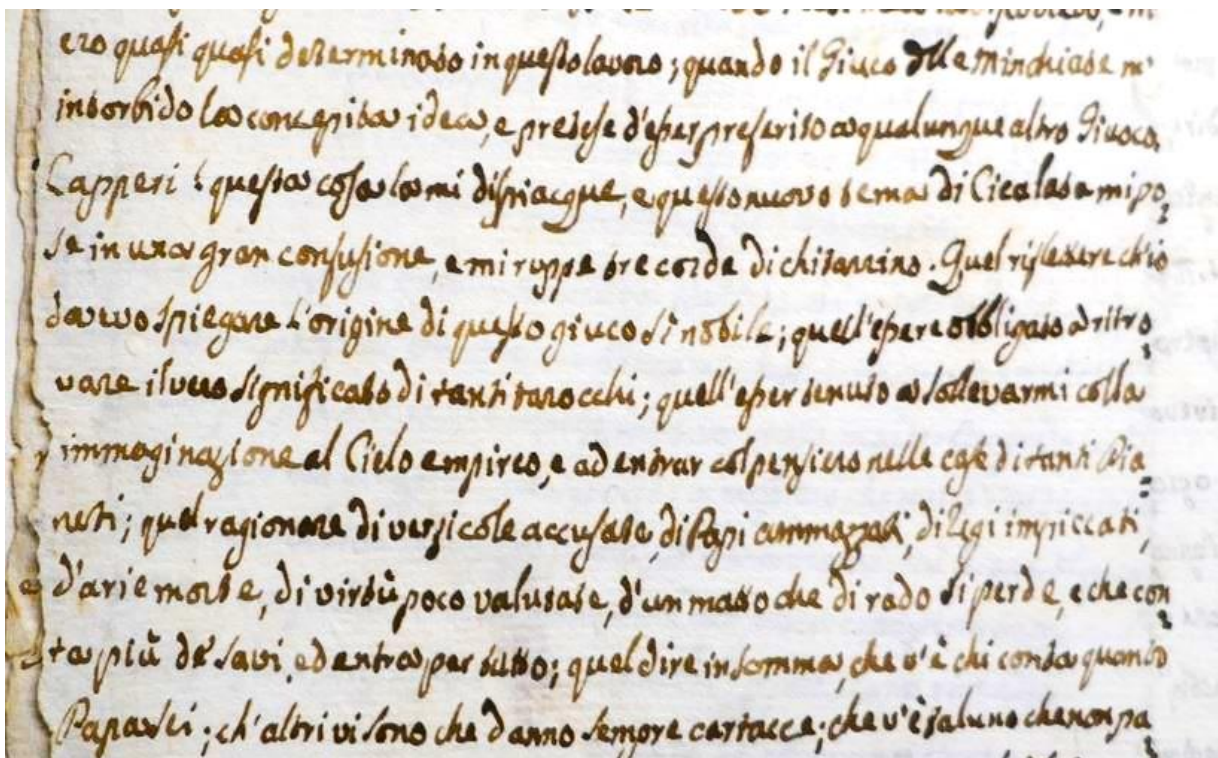 ero quasi quasi determinato in questo lavoro; quando il Giuco dlle Minchiate m'
intorbido la concepita idea, e pretese d'esser preferito a qualunque altro Giuoco.
Capperi! questa cosa la mi dispiacque, e questo nuovo tema di Cicalata mi po
se in una gran confusione, e mi ruppe tre corde di chitarrino. Quel riflettere ch'io
davevo spiegare l'origine di questo giuco sì nobile; quell'essere obbligato a ritro
vare il vero significato di tanti tarocchi; quell'esser tenuto a sollevarmi colla
immaginazione al Cielo empireo, e ad entrar col pensiero nelle case di tanti Pia
neti; quel ragionare di verzicole accusate, di Papi ammazzati, di Regi impiccati,
d'arie morte, di virtù poco valutate, d'un matto che di rado si perde, e che con
ta più de' savi, ed entra per tutto; quel dire in somma, che v'è chi conta quanto
Papa sei; ch'altri vi sono che danno sempre cartacce; che v'è taluno che non pa